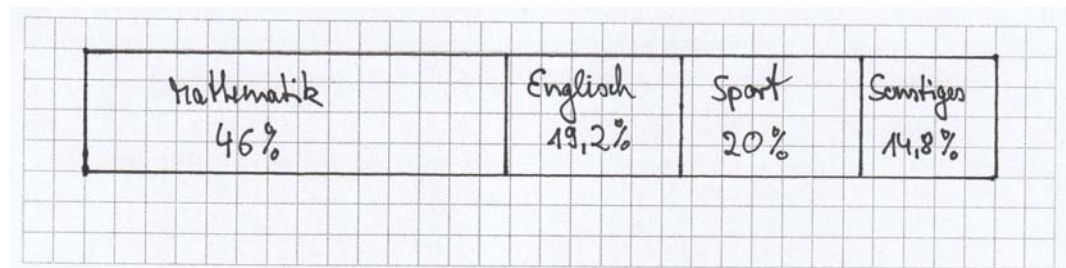 Mathematik
46%
Englisch
19,2%
Sport
20%
Sonstiges
14,8%